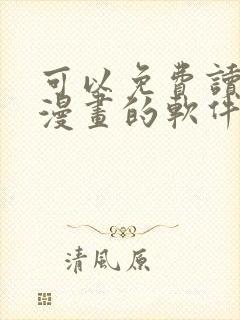 可以免費讀
漫畫的軟件
清風原